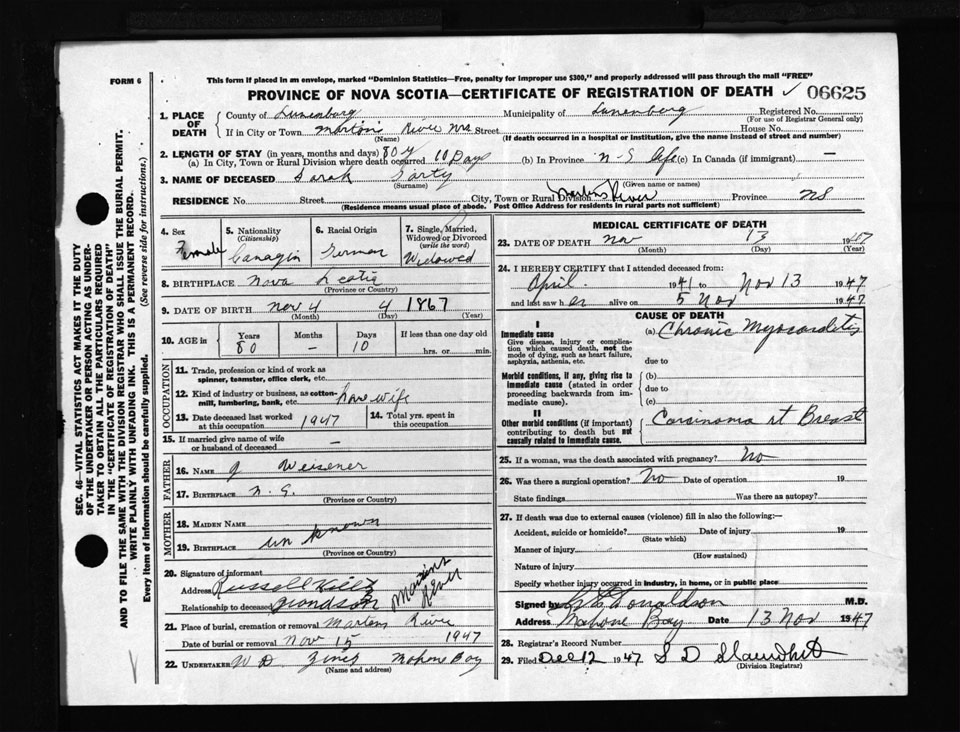 FORM 6
This form if placed in an envelope, marked "Dominion Statistics—Free, penalty for improper use $300," and properly addressed will pass through the mail "FREE"
PROVINCE OF NOVA SCOTIA—CERTIFICATE OF REGISTRATION OF DEATH ✓ 06625
SEC. 46—VITAL STATISTICS ACT MAKES IT THE DUTY
OF THE UNDERTAKER OR PERSON ACTING AS UNDER-
TAKER TO OBTAIN ALL THE PARTICULARS REQUIRED
IN THE "CERTIFICATE OF REGISTRATION OF DEATH"
AND TO FILE THE SAME WITH THE DIVISION REGISTRAR WHO SHALL ISSUE THE BURIAL PERMIT.
WRITE PLAINLY WITH UNFADING INK. THIS IS A PERMANENT RECORD.
Every item of Information should be carefully supplied. (See reverse side for instructions.)
1. PLACE OF DEATH
County of Lunenburg Municipality of Lunenburg Registered No.
(For use of Registrar General only)
If in City or Town Martin River N.S. Street House No.
(Name) (If death occurred in a hospital or institution, give the name instead of street and number)
2. LENGTH OF STAY (in years, months and days) 80 y
(a) In City, Town or Rural Division where death occurred 10 Days (b) In Province N-S life (c) In Canada (if immigrant) —
3. NAME OF DECEASED Sarah
(Surname) (Given name or names)
RESIDENCE No. Street City, Town or Rural Division Martins River Province NS
(Residence means usual place of abode. Post Office Address for residents in rural parts not sufficient)
4. Sex Female
5. Nationality (Citizenship)
6. Racial Origin German
7. Single, Married, Widowed or Divorced (write the word) Widowed
8. BIRTHPLACE Nova Scotia
(Province or Country)
9. DATE OF BIRTH Nov 4 4 1867
(Month) (Day) (Year)
10. AGE in Years 80 Months — Days 10 If less than one day old hrs. or min.
OCCUPATION
11. Trade, profession or kind of work as spinner, teamster, office clerk, etc.
12. Kind of industry or business, as cotton-mill, lumbering, bank, etc.
13. Date deceased last worked at this occupation 1947
14. Total yrs. spent in this occupation
15. If married give name of wife or husband of deceased —
FATHER
16. NAME J Weisener
17. BIRTHPLACE N. S.
(Province or Country)
MOTHER
18. MAIDEN NAME
unknown
19. BIRTHPLACE
(Province or Country)
20. Signature of informant
Russell
Address Martins River
Relationship to deceased grandson
21. Place of burial, cremation or removal Martins River
Date of burial or removal Nov 15 1947
22. UNDERTAKER W D Mahone Bay
(Name and address)
MEDICAL CERTIFICATE OF DEATH
23. DATE OF DEATH Nov 13 1947
(Month) (Day) (Year)
24. I HEREBY CERTIFY that I attended deceased from:
April 1941 to Nov 13 1947
and last saw her alive on 5 Nov 1947
CAUSE OF DEATH
I
Immediate cause (a) Chronic Myocarditis
Give disease, injury or complication which caused death, not the mode of dying, such as heart failure, asphyxia, asthenia, etc. due to
Morbid conditions, if any, giving rise to immediate cause (stated in order proceeding backwards from immediate cause). (b)
due to
(c)
II
Other morbid conditions (if important) contributing to death but not causally related to immediate cause. Carcinoma rt Breast
25. If a woman, was the death associated with pregnancy? No
26. Was there a surgical operation? No Date of operation 19
State findings Was there an autopsy?
27. If death was due to external causes (violence) fill in also the following:—
Accident, suicide or homicide? Date of injury 19
(State which)
Manner of injury
(How sustained)
Nature of injury
Specify whether injury occurred in industry, in home, or in public place
Signed by Donaldson M.D.
Address Mahone Bay Date 13 Nov 1947
28. Registrar's Record Number
29. Filed Dec 12 1947 S D
(Division Registrar)